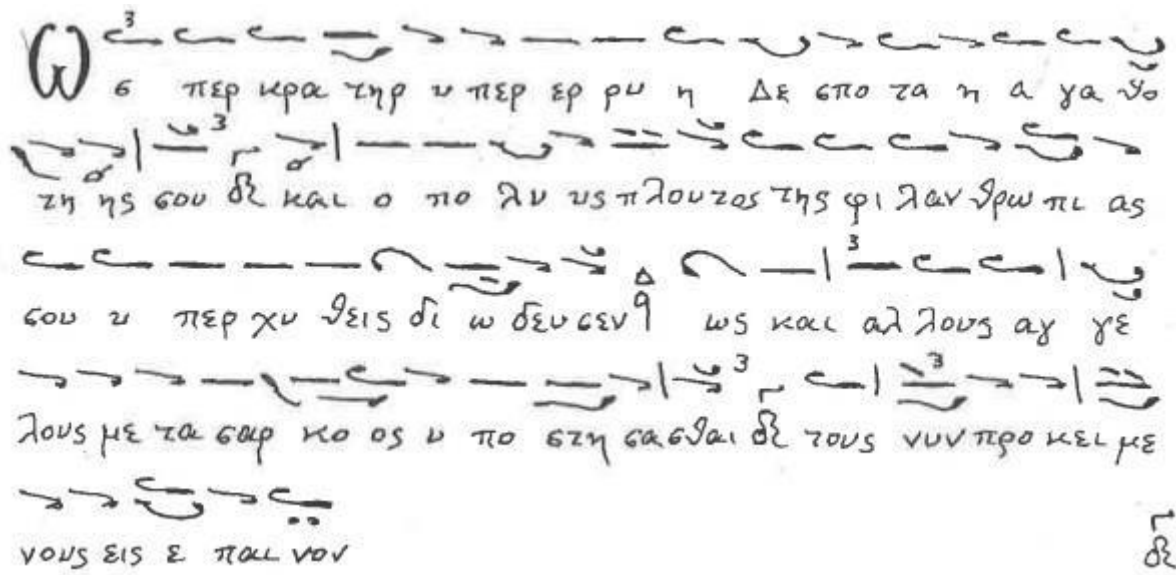 Ω σ περ κρα τηρ υ περ ερ ρυ η Δε σπο τα η α γα θο
τη ης σου και ο πο λυ υς πλουτος της φι λαν θρω πι ας
σου υ περ χυ θεις δι ω δευ σεν ως και αλ λους αγ γε
λους με τα σαρ κο ος υ πο στη σασθαι τους νυν προ κει με
νους εις ε παι νον